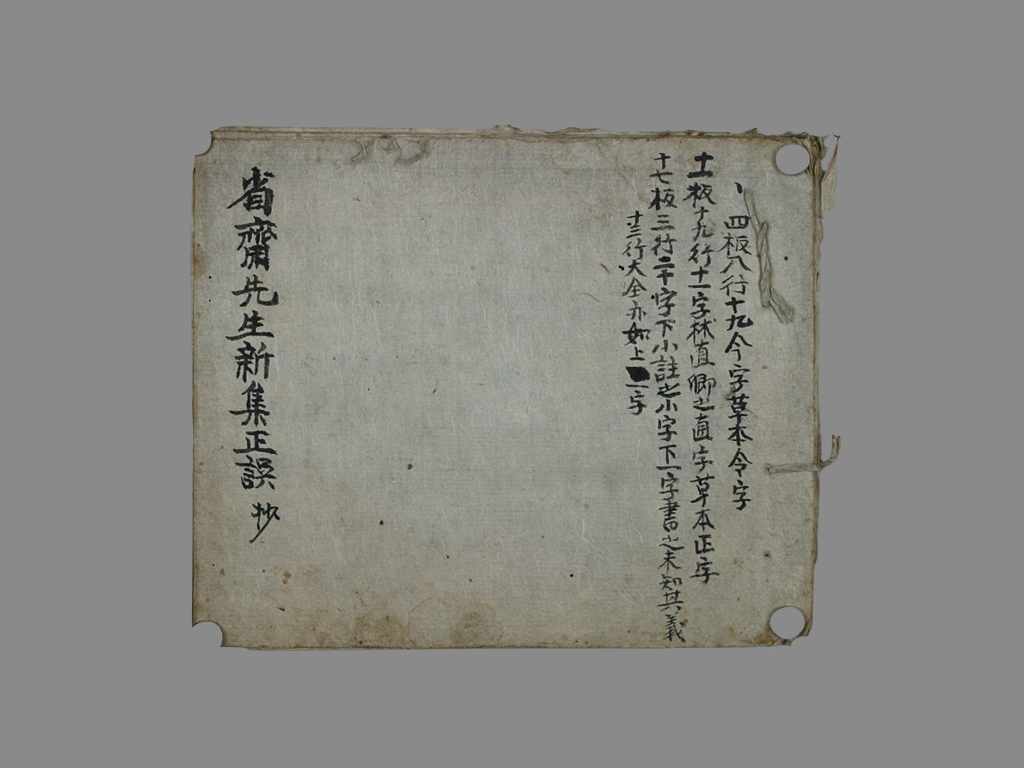 丶四板八行十九今字草本令字
十一板十九行十一字林直卿之直字草本正字
十七板三行二十字下小註之小字下一字書之未知其義
十三行大全亦如上一字
省齋先生新集正誤 抄